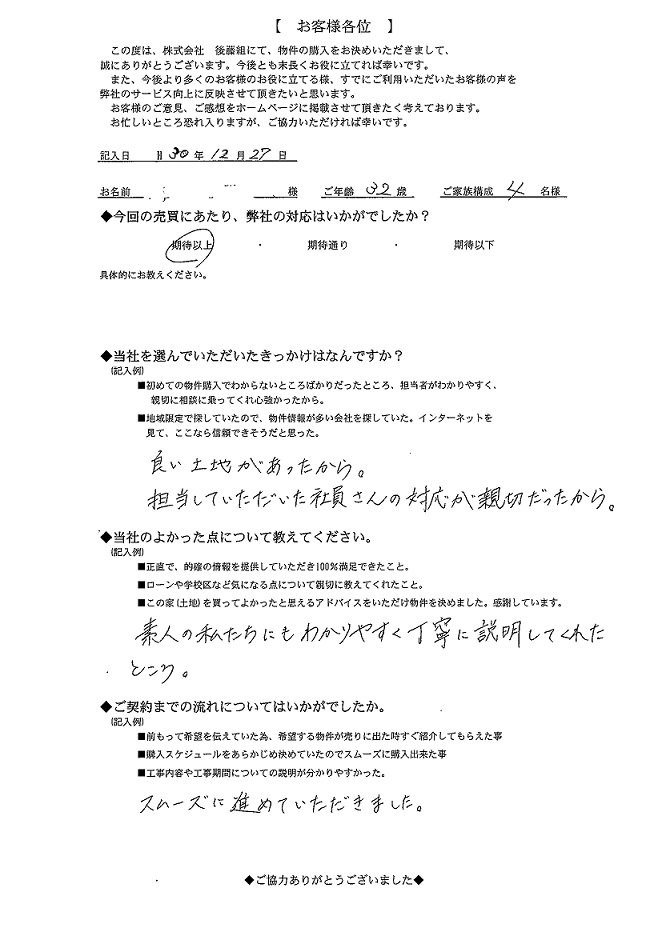 【　お客様各位　】
この度は、株式会社　後藤組にて、物件の購入をお決めいただきまして、
誠にありがとうございます。今後とも末長くお役に立てれば幸いです。
また、今後より多くのお客様のお役に立てる様、すでにご利用いただいたお客様の声を
弊社のサービス向上に反映させて頂きたいと思います。
お客様のご意見、ご感想をホームページに掲載させて頂きたく考えております。
お忙しいところ恐れ入りますが、ご協力いただければ幸いです。
記入日　H 30 年 12 月 27 日
お名前　様　ご年齢 32 歳　ご家族構成 4 名様
◆今回の売買にあたり、弊社の対応はいかがでしたか？
期待以上　・　期待通り　・　期待以下
具体的にお教えください。
◆当社を選んでいただいたきっかけはなんですか？
(記入例)
■初めての物件購入でわからないところばかりだったところ、担当者がわかりやすく、
親切に相談に乗ってくれ心強かったから。
■地域限定で探していたので、物件情報が多い会社を探していた。インターネットを
見て、ここなら信頼できそうだと思った。
良い土地があったから。
担当していただいた社員さんの対応が親切だったから。
◆当社のよかった点について教えてください。
(記入例)
■正直で、的確の情報を提供していただき100%満足できたこと。
■ローンや学校区など気になる点について親切に教えてくれたこと。
■この家(土地)を買ってよかったと思えるアドバイスをいただけ物件を決めました。感謝しています。
素人の私たちにもわかりやすく丁寧に説明してくれた
ところ。
◆ご契約までの流れについてはいかがでしたか。
(記入例)
■前もって希望を伝えていた為、希望する物件が売りに出た時すぐ紹介してもらえた事
■購入スケジュールをあらかじめ決めていたのでスムーズに購入出来た事
■工事内容や工事期間についての説明が分かりやすかった。
スムーズに進めていただきました。
◆ご協力ありがとうございました◆